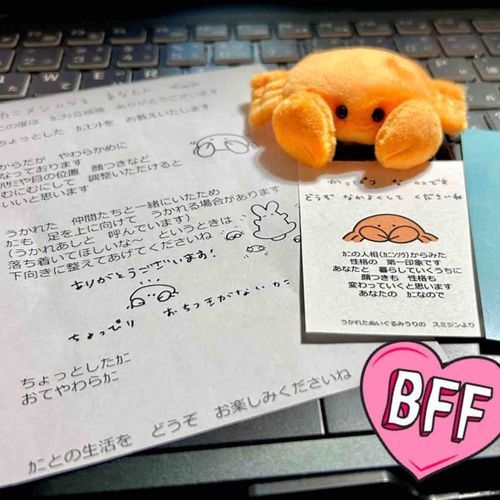 この度は カニ引立候補 ありがとうございます
ちょっとした カニホットを お教えいたします
からだが やわらかめに
なっております
ハサミや目の位置 顔つきなど
むにむにして 調整いただけると
いいと思います
うかれた 仲間たちと一緒にいたため
カニも 足を上に向けて うかれる場合があります
(うかれあしと 呼んでいます)
落ち着いてほしいな～ というときは
下向きに整えてあげてくださいね
ありがとうございます!
ちょっぴり おちつきがない カニ
ちょっとしたカニ
おてやわらカニ
カニとの生活を どうぞ お楽しみくださいね
かっぱつ な カニです
どうぞ なかよくして くださいね
カニの人相(カニソウ)からみた
性格の 第一印象です
あなたと 暮らしていくうちに
顔つきも 性格も
変わっていくと思います
あなたの カニなので
うかれたぬいぐるみうりの スミジンより
BFF